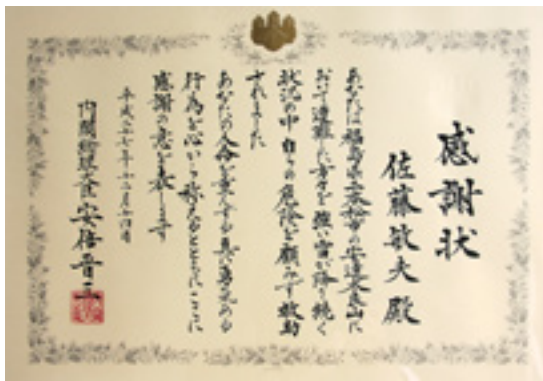 感謝状
佐藤敏夫殿
あなたは福島県二本松市の安達太良山に
おいて遭難した方々を強い雪が降り続く
状況の中自らの危険を顧みず救助
されました
あなたの人命を尊重する真に勇気のある
行為を心から称えるとともにここに
感謝の意を表します
平成二十七年十二月二十四日
内閣総理大臣安倍晋三